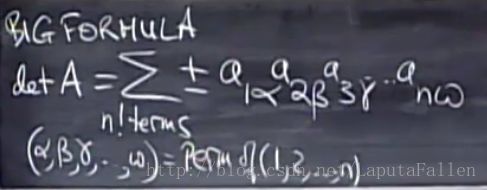 BIG FORMULA
det A = Σ ± a₁α a₂β a₃γ ... aₙω
n! terms
(α,β,γ,...,ω) = Perm of (1,2,...,n)
http://blog.csdn.net/LaputaFallen